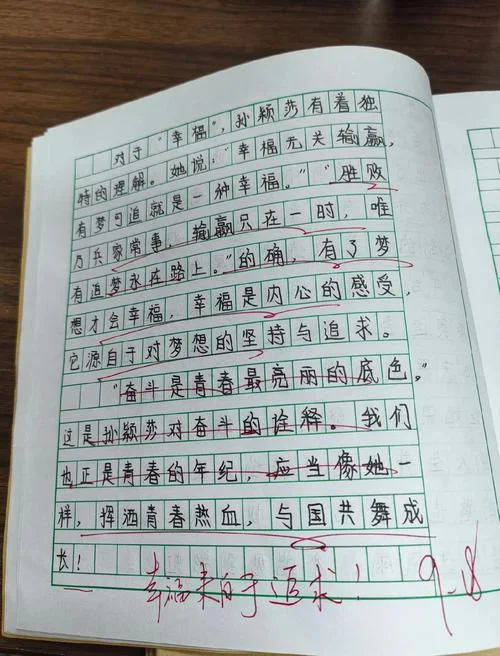 对于“幸福”，孙颖莎有着独
特的理解。她说：“幸福无关输赢，
有梦可追就是一种幸福。”“胜败
乃兵家常事，输赢只在一时，唯
有追梦永在路上。”的确，有了梦
想才会幸福，幸福是内心的感受，
它源自于对梦想的坚持与追求。
“奋斗是青春最亮丽的底色。”
这是孙颖莎对奋斗的诠释。我们
也正是青春的年纪，应当像她一
样，挥洒青春热血，与国共舞成
长！
幸福来自于追求！ 9.18